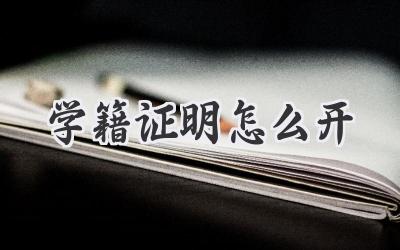 学籍证明怎么开